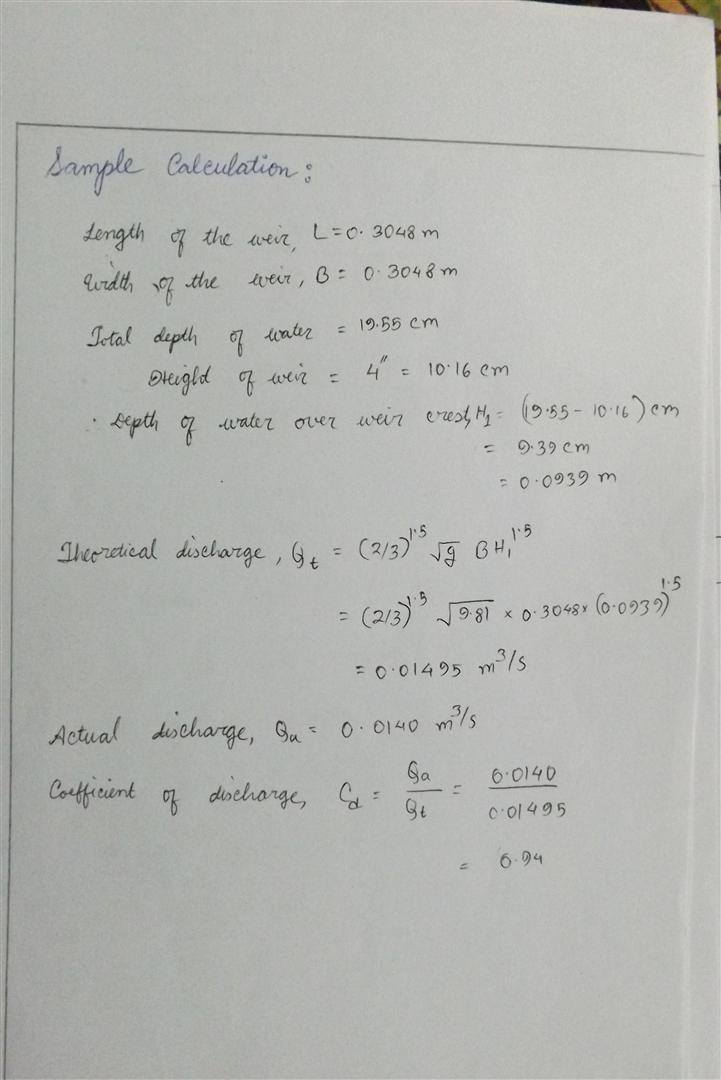 Sample Calculation:
Length of the weir, L = 0.3048 m
Width of the weir, B = 0.3048 m
Total depth of water = 19.55 cm
Height of weir = 4" = 10.16 cm
∴ Depth of water over weir crest, H₁ = (19.55 - 10.16) cm
= 9.39 cm
= 0.0939 m
Theoretical discharge, Qₜ = (2/3)^1.5 √g B H₁^1.5
= (2/3)^1.5 √9.81 × 0.3048 × (0.0939)^1.5
= 0.01495 m³/s
Actual discharge, Qa = 0.0140 m³/s
Coefficient of discharge, Cd = Qa/Qt = 0.0140/0.01495
= 0.94